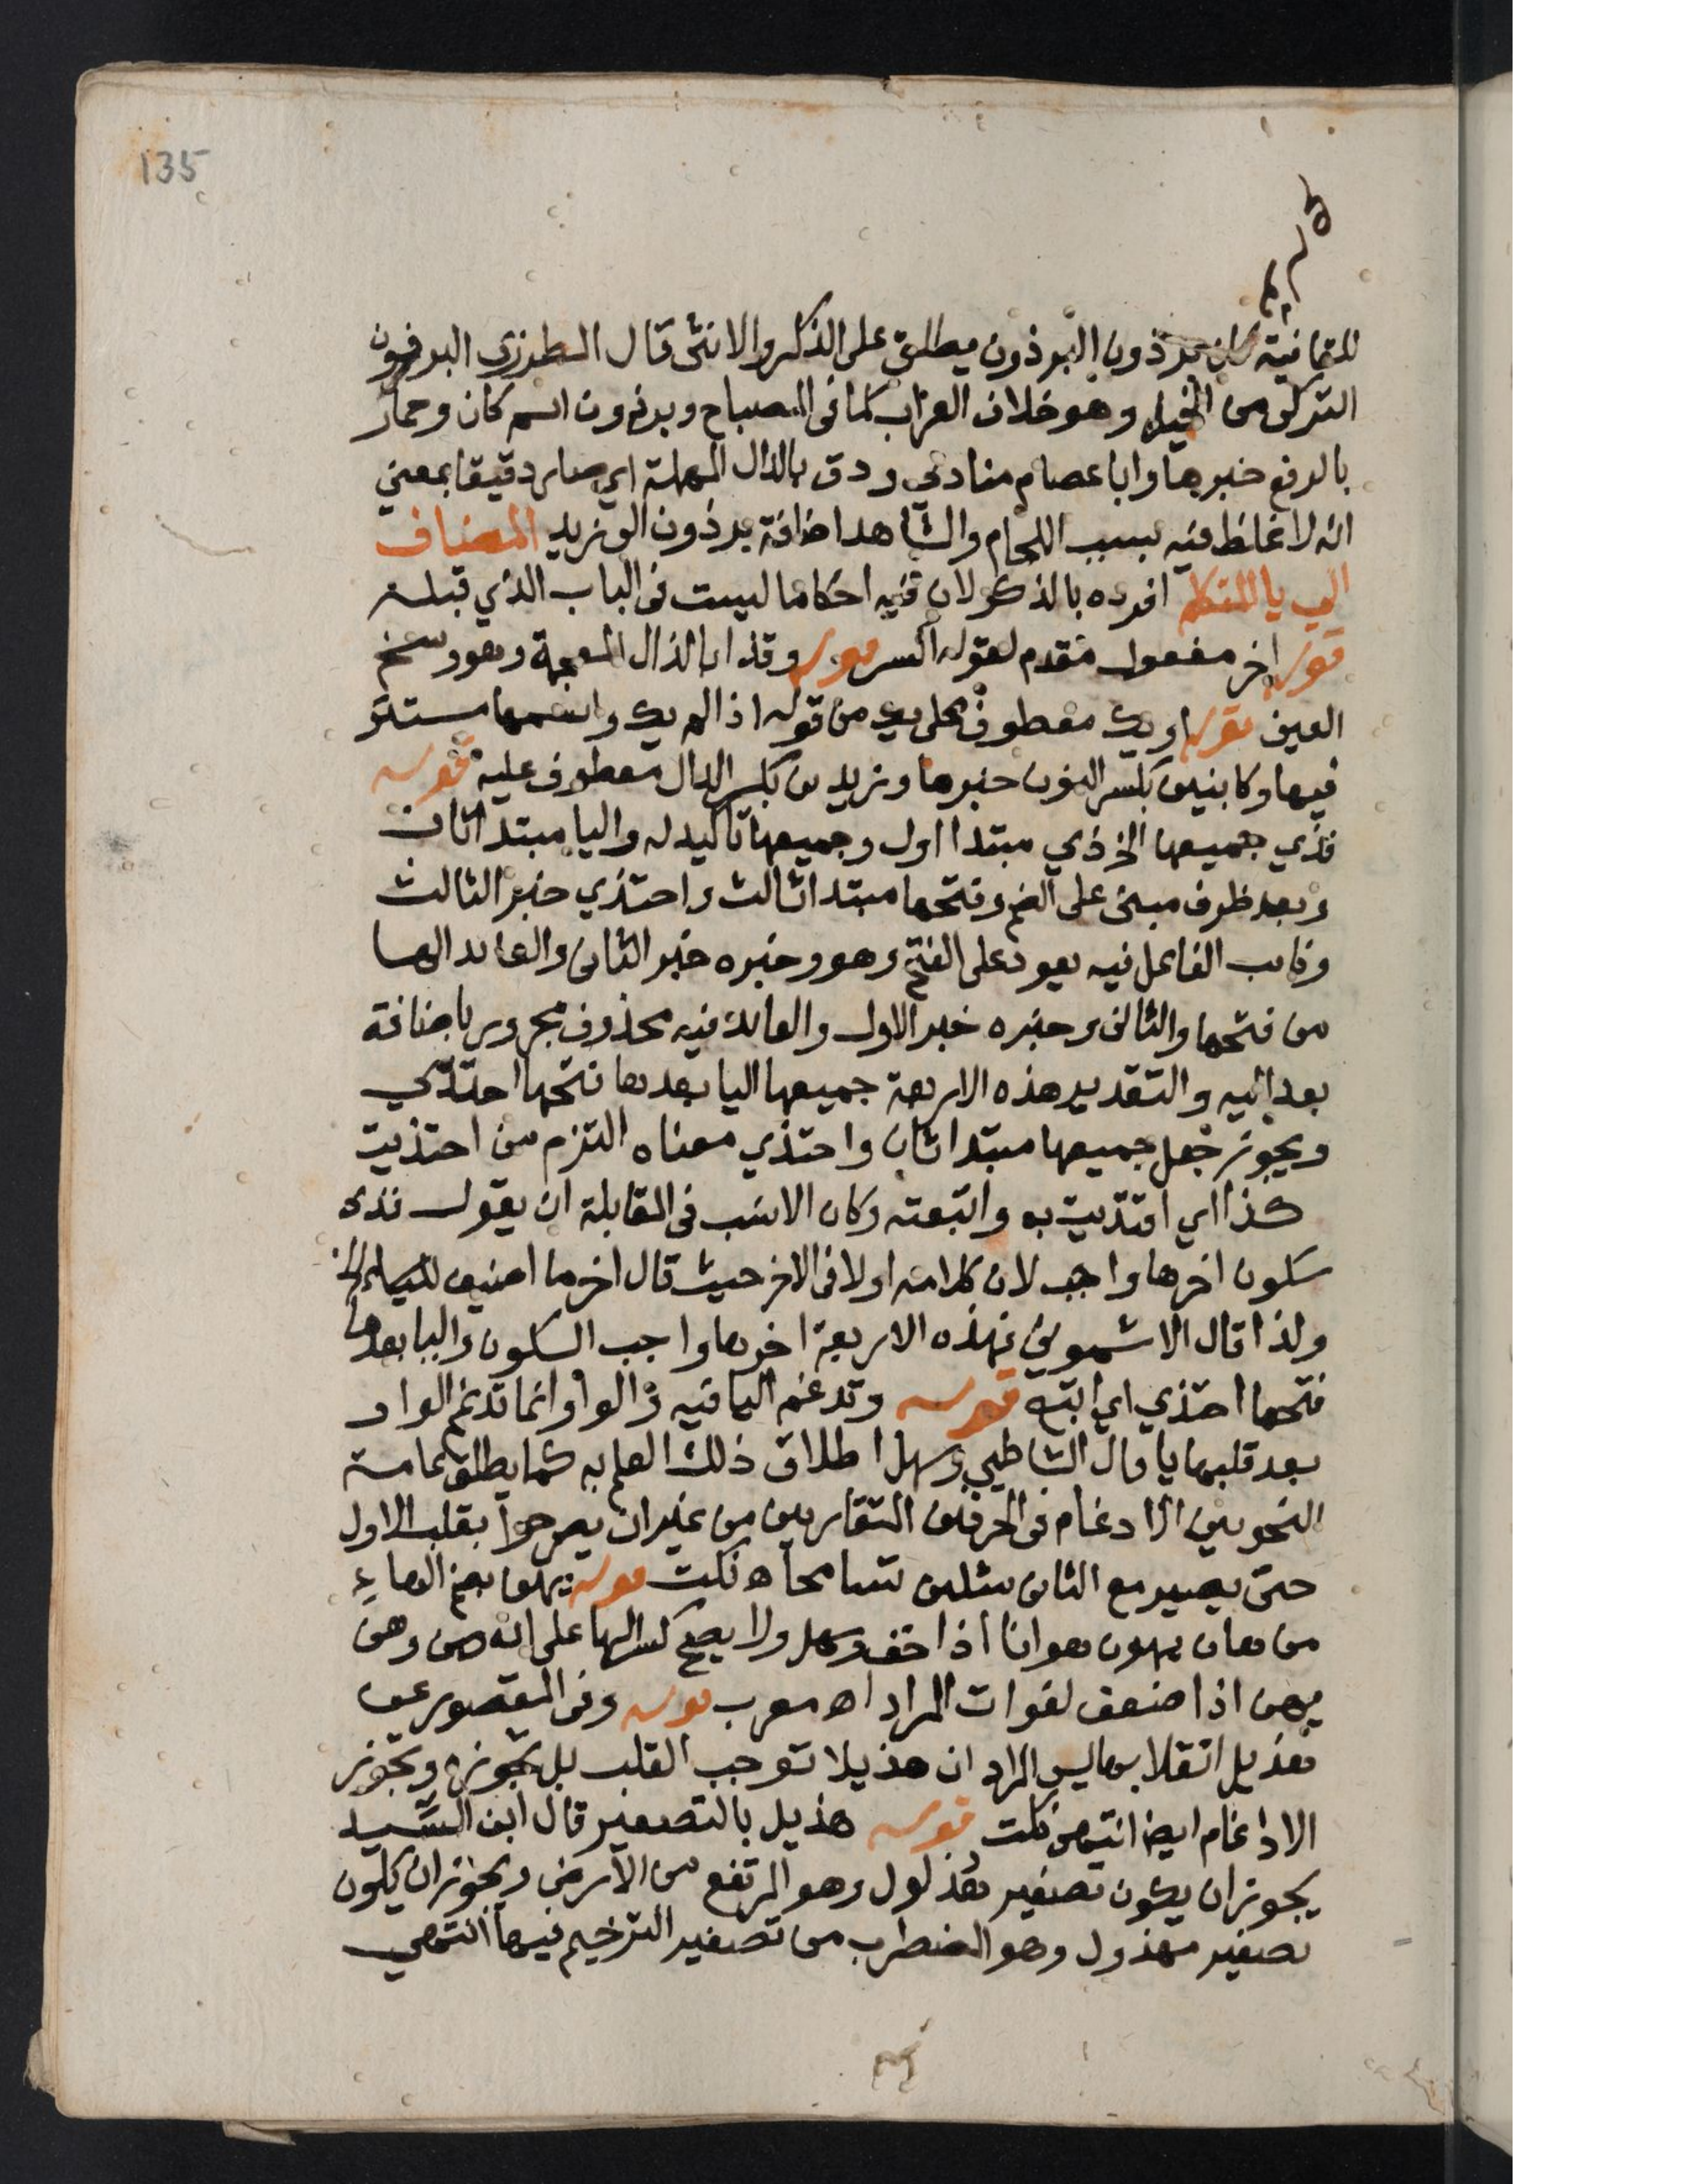 135
للتمانية كان برذون البرذون يطلق على الذكر والانثى قال المطرزي البرذون
التركى من الخيل وهو خلاف العراب كما فى المصباح وبرذون اسم كان وحمار
بالرفع خبرها وابا عصام منادي ودق بالدال المهملة اي صار دقيقا بمعني
انه لا غلظ فيه بسبب اللجام والشاهد اضافة برذون الى زيد المضاف
الى يا المتكلم افرده بالذكر لان فيه احكاما ليست فى الباب الذي قبله
قوله اخر مفعول مقدم لقوله اكسر قوله وقذا بالذال المعجمة وهو وسخ
العين قوله او يك معطوف على يك من قوله اذا لم يك واسمها مستتر
فيها وكابنين بكسر النون خبرها وزيدين بكسر الدال معطوف عليه قوله
فذي جميعها الخ ذي مبتدا اول وجميعها تاكيد له واليا مبتدا ثان
وبعد ظرف مبنى على الضم وفتحها مبتدا ثالث واحتذي خبر الثالث
ونايب الفاعل فيه يعود على الفتح وهو وخبره خبر الثانى والعايد الها
من فتحها والثانى وخبره خبر الاول والعايد فيه محذوف مجرور باضافة
بعد اليه والتقدير هذه الاربعة جميعها اليا بعدها فتحها احتذي
ويجوز جعل جميعها مبتدا ثان واحتذي معناه التزم من احتذيت
كذا اي اقتديت به واتبعته وكان الانسب فى المقابلة ان يقول فذى
سكون اخرها واجب لان كلامه اولا فى الاخر حيث قال اخر ما اضيف للياء الخ
ولذا قال الاشموني فهذه الاربعة اخرها واجب السكون واليا بعدها
فتحها احتذي اي اتبع قوله وتدغم اليا فيه والواو وانما تدغم الواو
بعد قلبها يا قال الشاطبي وسهل اطلاق ذلك العلم به كما يطلق عامة
النحويين الادغام فى الحرفين المتقاربين من غير ان يصرحوا بقلب الاول
حتى يصير مع الثانى مثلين تسامحا اه نكت قوله يهن بضم الهاء
من هان يهون هوانا اذا خف وسهل ولا يصح كسر الها على انه من وهن
يهن اذا ضعف لفوات المراد اه معرب قوله وفى المقصور عن
هذيل انقلابها ليس المراد ان هذيلا توجب القلب بل تجوزه وتجوز
الادغام ايضا انتهى نكت قوله هذيل بالتصغير قال ابن السيد
يجوز ان يكون تصغير هذلول وهو المرتفع من الارض ويجوز ان يكون
تصغير مهذول وهو المضطرب من تصغير الترخيم فيها انتهي